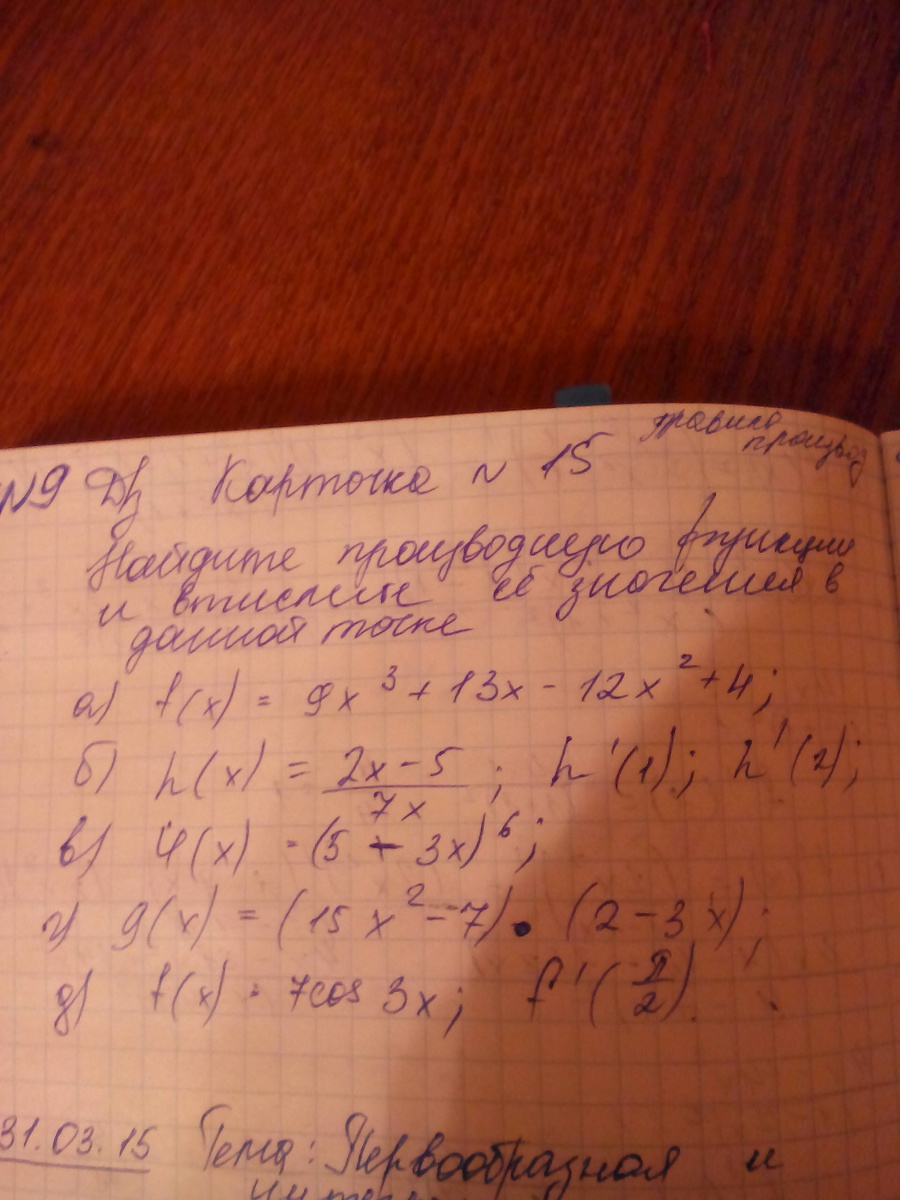 №9 Д/з Карточка № 15 правила
произвoд
Найдите производную функции
и вычислите её значения в
данной точке
а) f(x) = 9x³ + 13x - 12x² + 4;
б) h(x) = (2x - 5)/(7x); h'(1); h'(2);
в) φ(x) = (5 - 3x)⁶;
г) g(x) = (15x² - 7) · (2 - 3x);
д) f(x) = 7cos 3x; f'(π/2).
31.03.15 Тема: Первообразная и